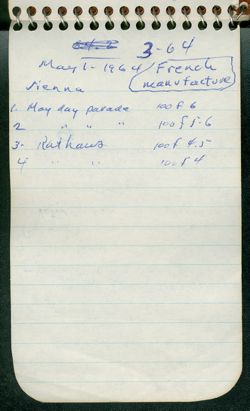 3-64
May 1-1964 French
Vienna manufacture
1. May day parade 100 f 6
2 " " " 100 f 5-6
3- Rathaus 100 f 4.5
4 " " 100 f 4